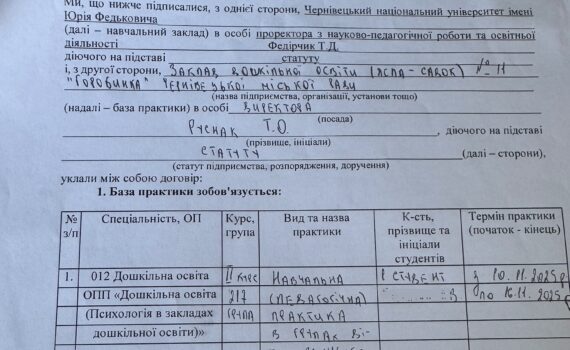 Ми, що нижче підписалися, з однієї сторони, Чернівецький національний університет імені
Юрія Федьковича
(далі – навчальний заклад) в особі проректора з науково-педагогічної роботи та освітньої
діяльності Федірчик Т.Д.
діючого на підставі статуту
і, з другої сторони, ЗАКЛАД ДОШКІЛЬНОЇ ОСВІТИ (ЯСЛА-САДОК) № 11
"ГОРОБИНКА" ЧЕРНІВЕЦЬКОЇ МІСЬКОЇ РАДИ
(назва підприємства, організації, установи тощо)
(надалі – база практики) в особі ДИРЕКТОРА
(посада)
РУСНАК Т.О. , діючого на підставі
(прізвище, ініціали)
СТАТУТУ (далі – сторони),
(статут підприємства, розпорядження, доручення)
уклали між собою договір:
1. База практики зобов'язується:
№ з/п Спеціальність, ОП Курс, група Вид та назва практики К-сть, прізвище та ініціали студентів Термін практики (початок - кінець)
1. 012 Дошкільна освіта ІІ КУРС НАВЧАЛЬНА 1 СТУДЕНТ з 10.11.2025р
ОПП «Дошкільна освіта 217 (ПЕДАГОГІЧНА) по 16.11.2025р
(Психологія в закладах ГРУПА ПРАКТИКА
дошкільної освіти)» В ГРУПАХ ВІ-